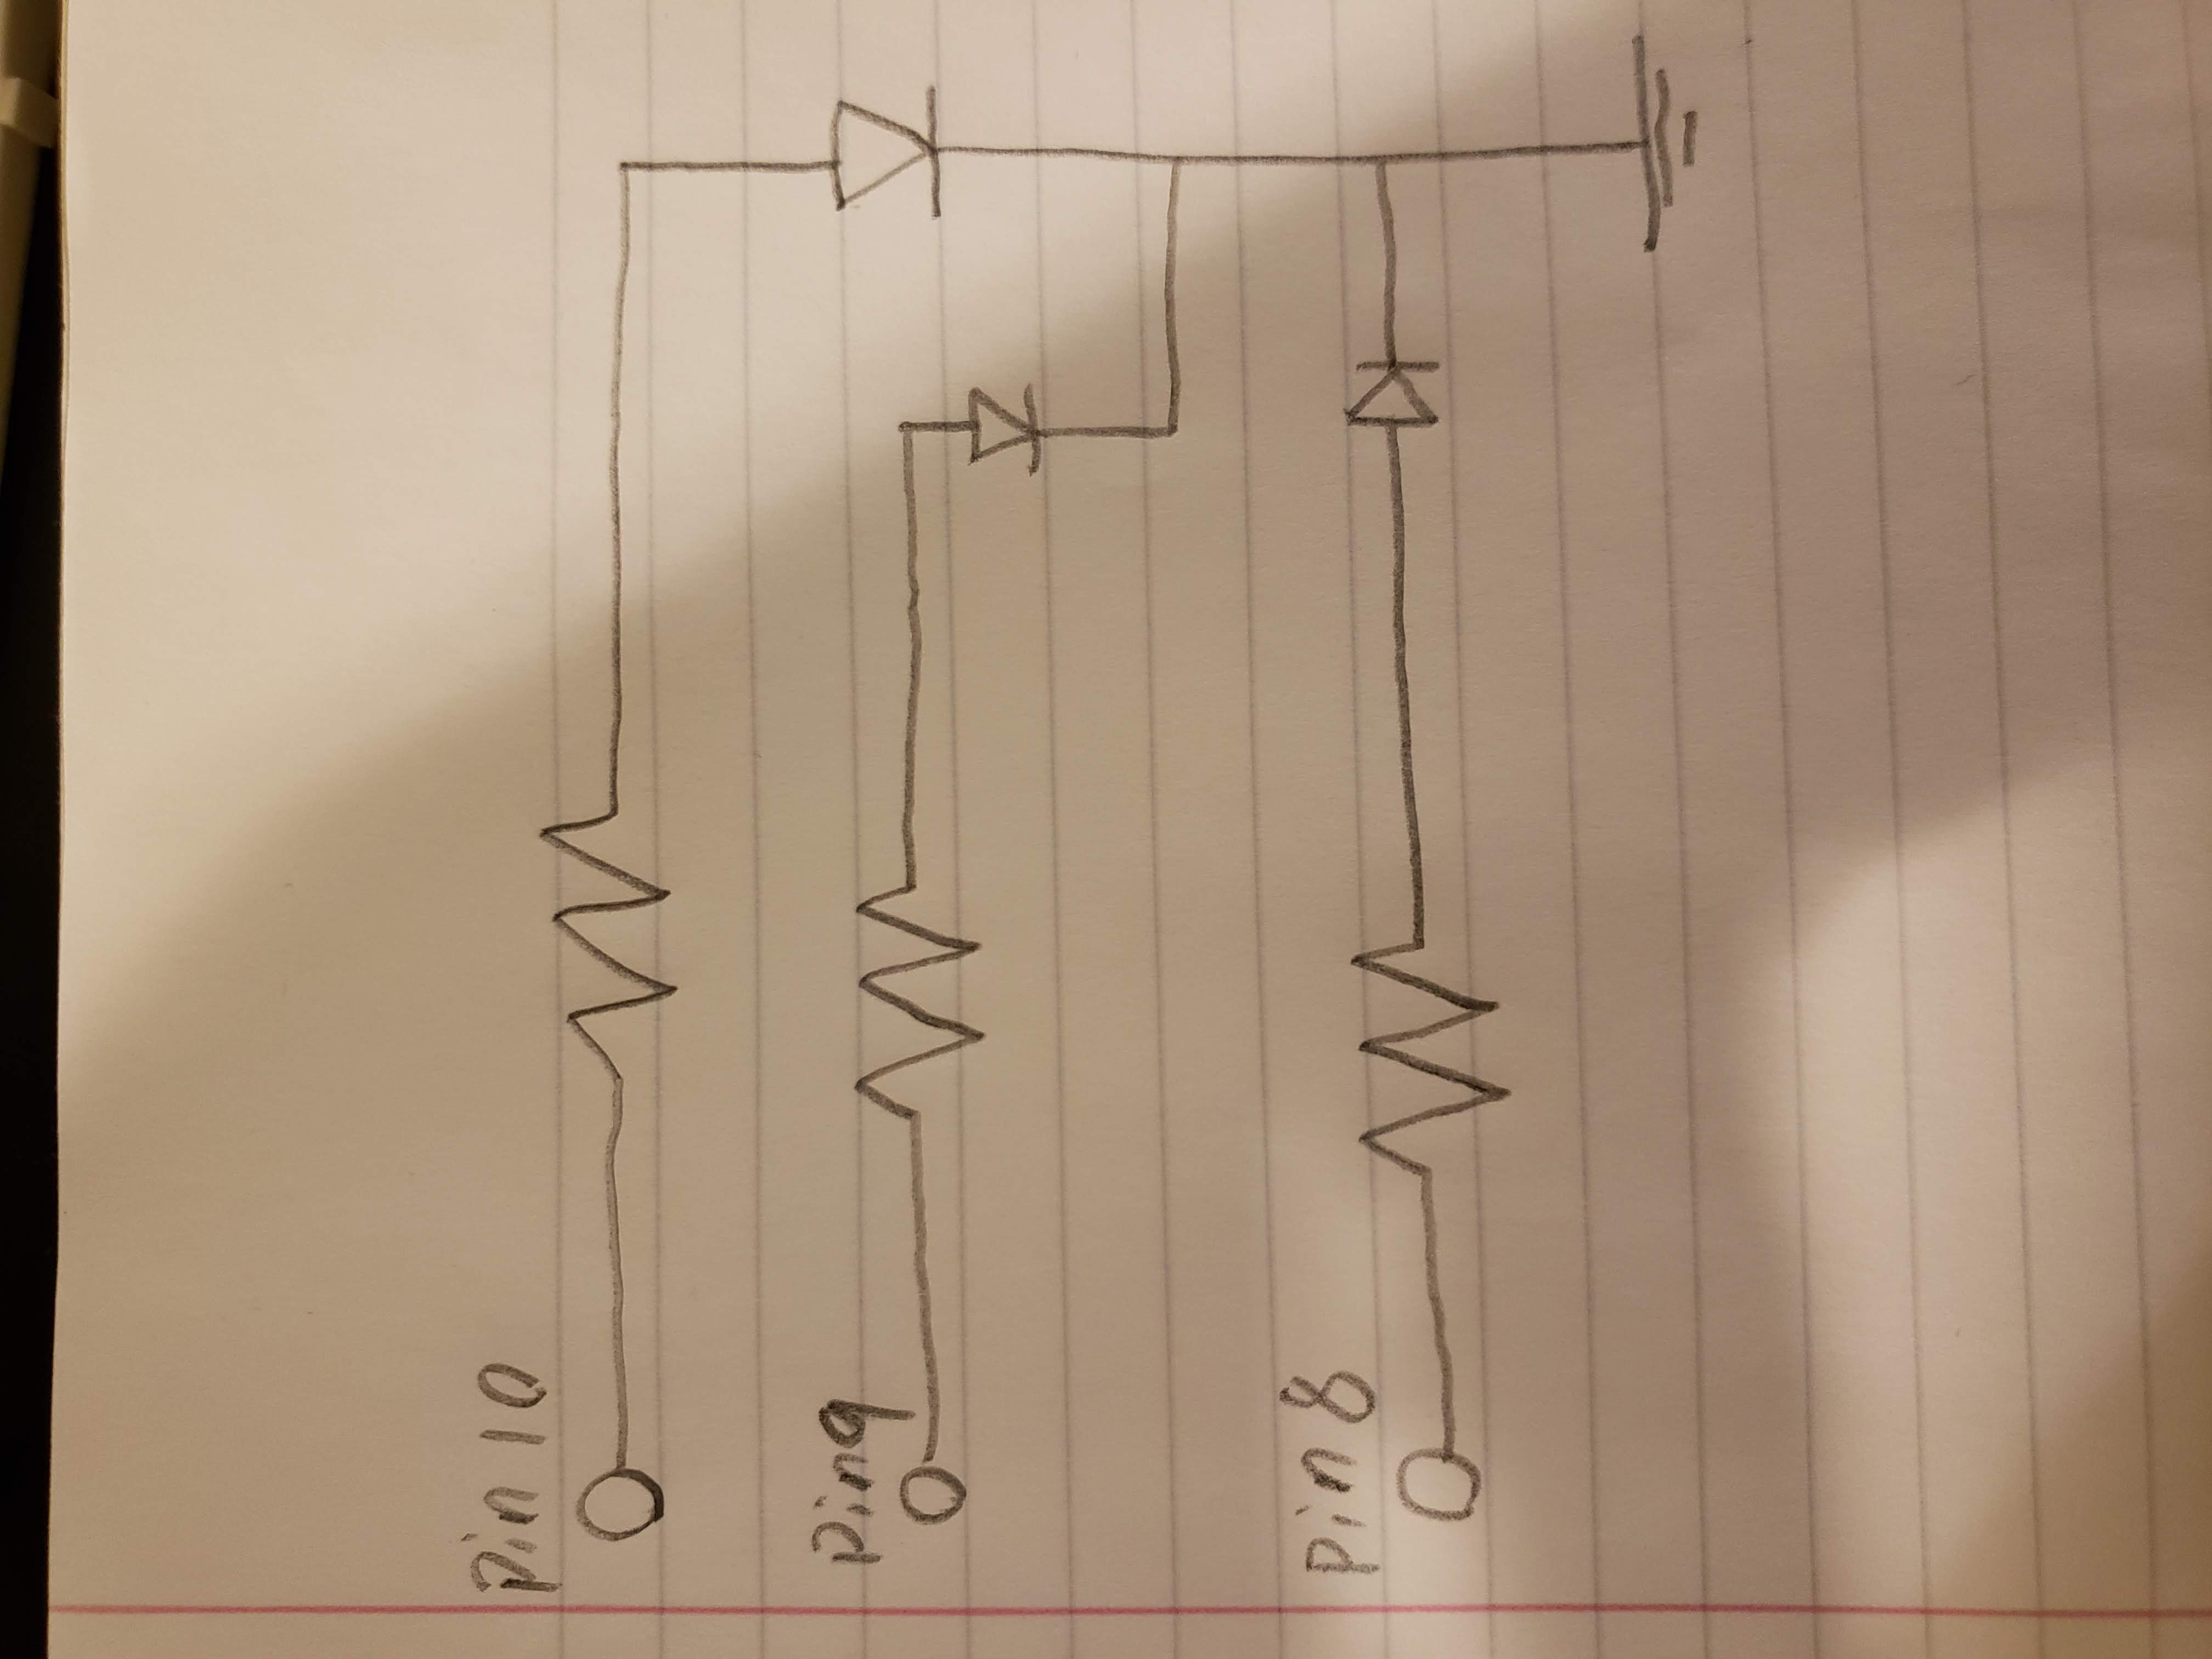 Pin 10
Pin 9
Pin 8